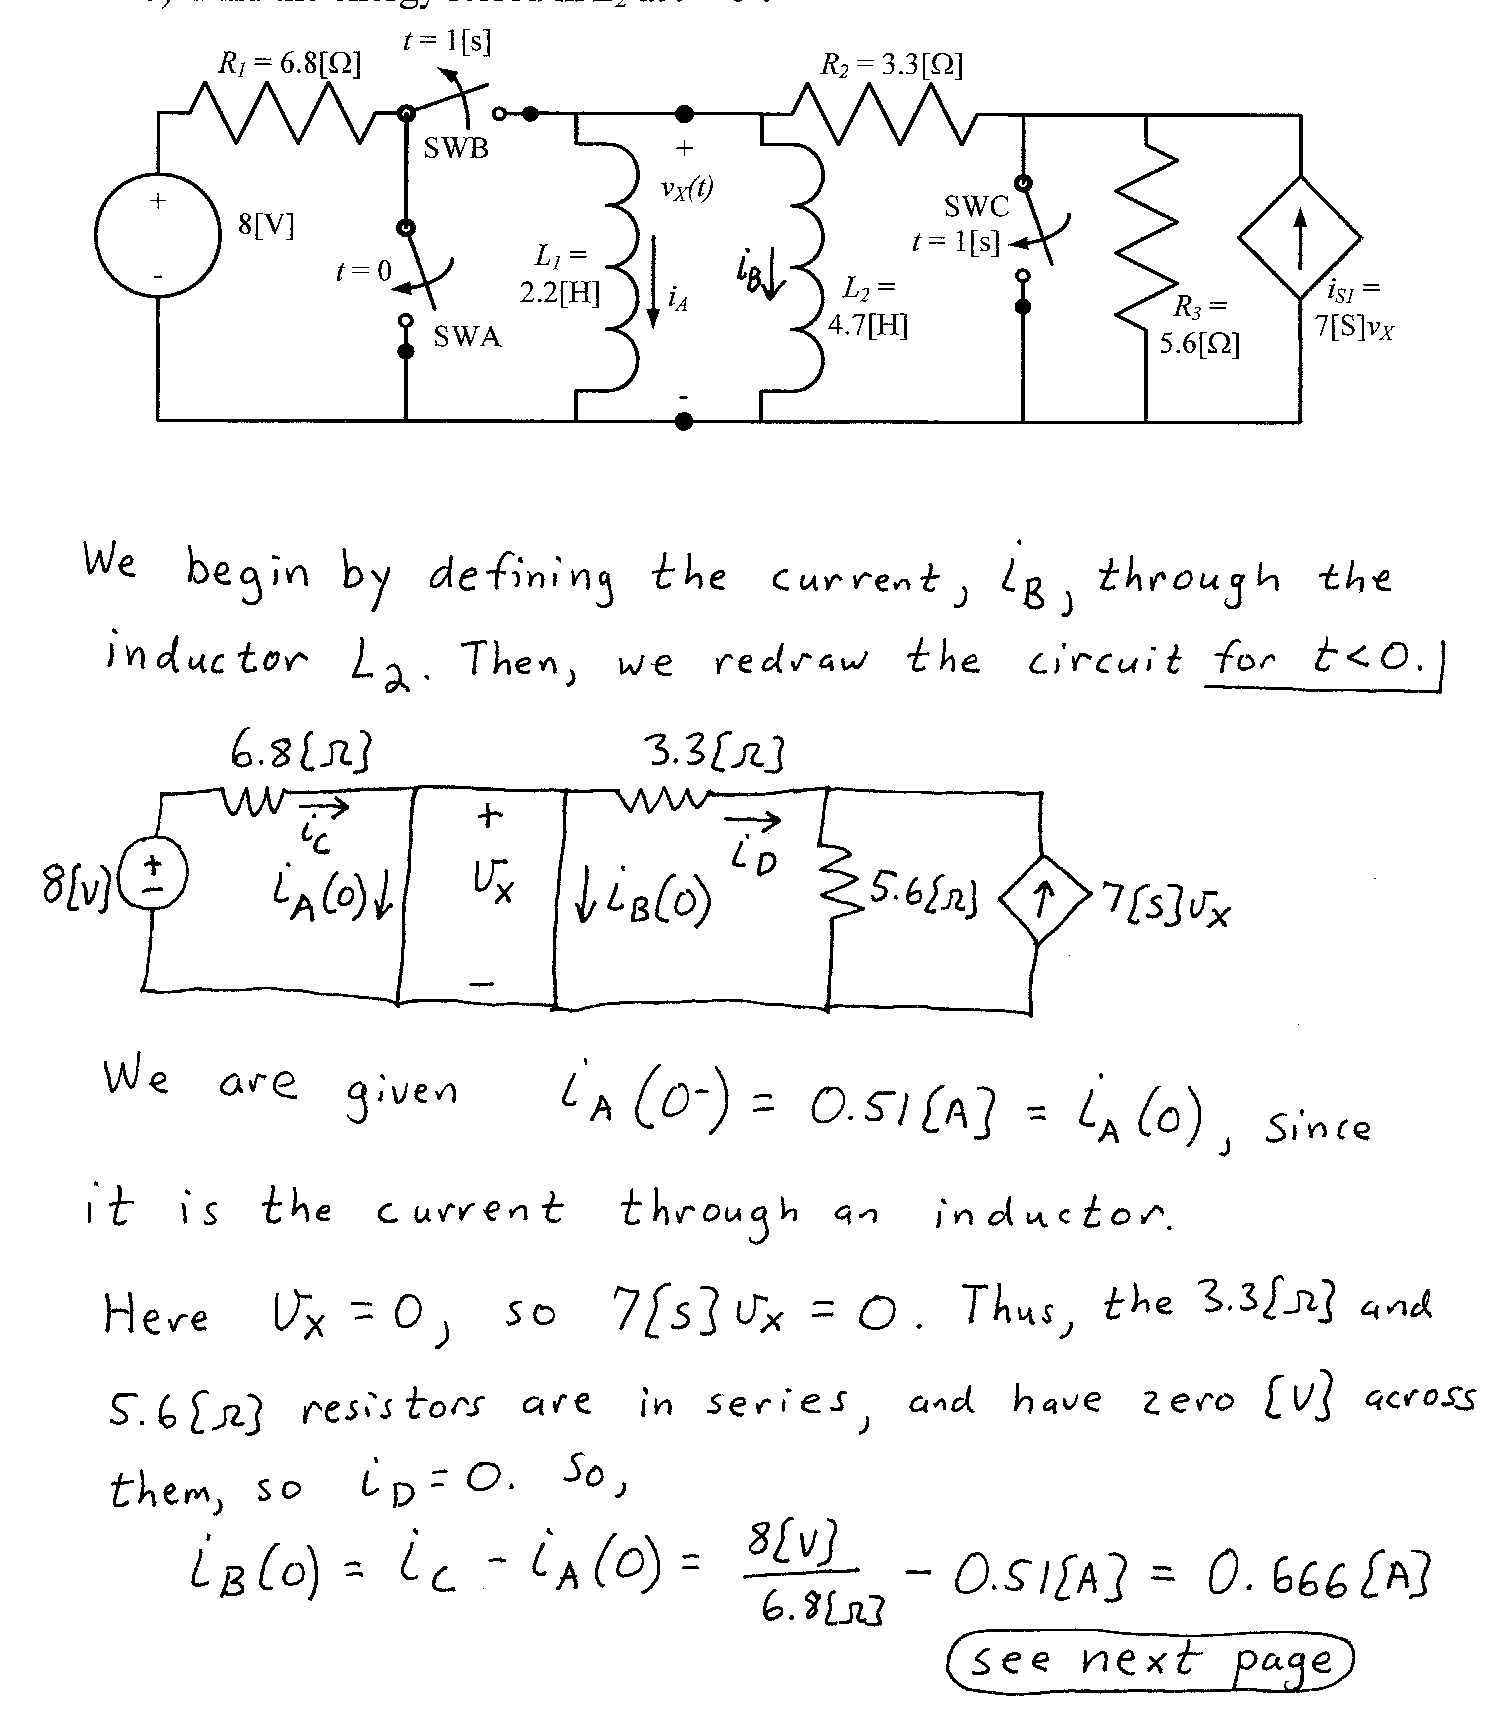 t = 1[s]
R1 = 6.8[Ω]
R2 = 3.3[Ω]
SWB
+
vX(t)
-
+
8[V]
-
t = 0
SWA
L1 =
2.2[H]
iA
iB
L2 =
4.7[H]
SWC
t = 1[s]
R3 =
5.6[Ω]
iS1 =
7[S]vX
We begin by defining the current, iB, through the
inductor L2. Then, we redraw the circuit for t<0.
6.8[Ω]
3.3[Ω]
iC
iD
8[V]
+
-
iA(0)
+
vX
-
iB(0)
5.6[Ω]
7[S]vX
We are given iA(0-) = 0.51[A] = iA(0), since
it is the current through an inductor.
Here vX = 0, so 7[S]vX = 0. Thus, the 3.3[Ω] and
5.6[Ω] resistors are in series, and have zero [V] across
them, so iD = 0. So,
iB(0) = iC - iA(0) = 8[V]/6.8[Ω] - 0.51[A] = 0.666[A]
see next page